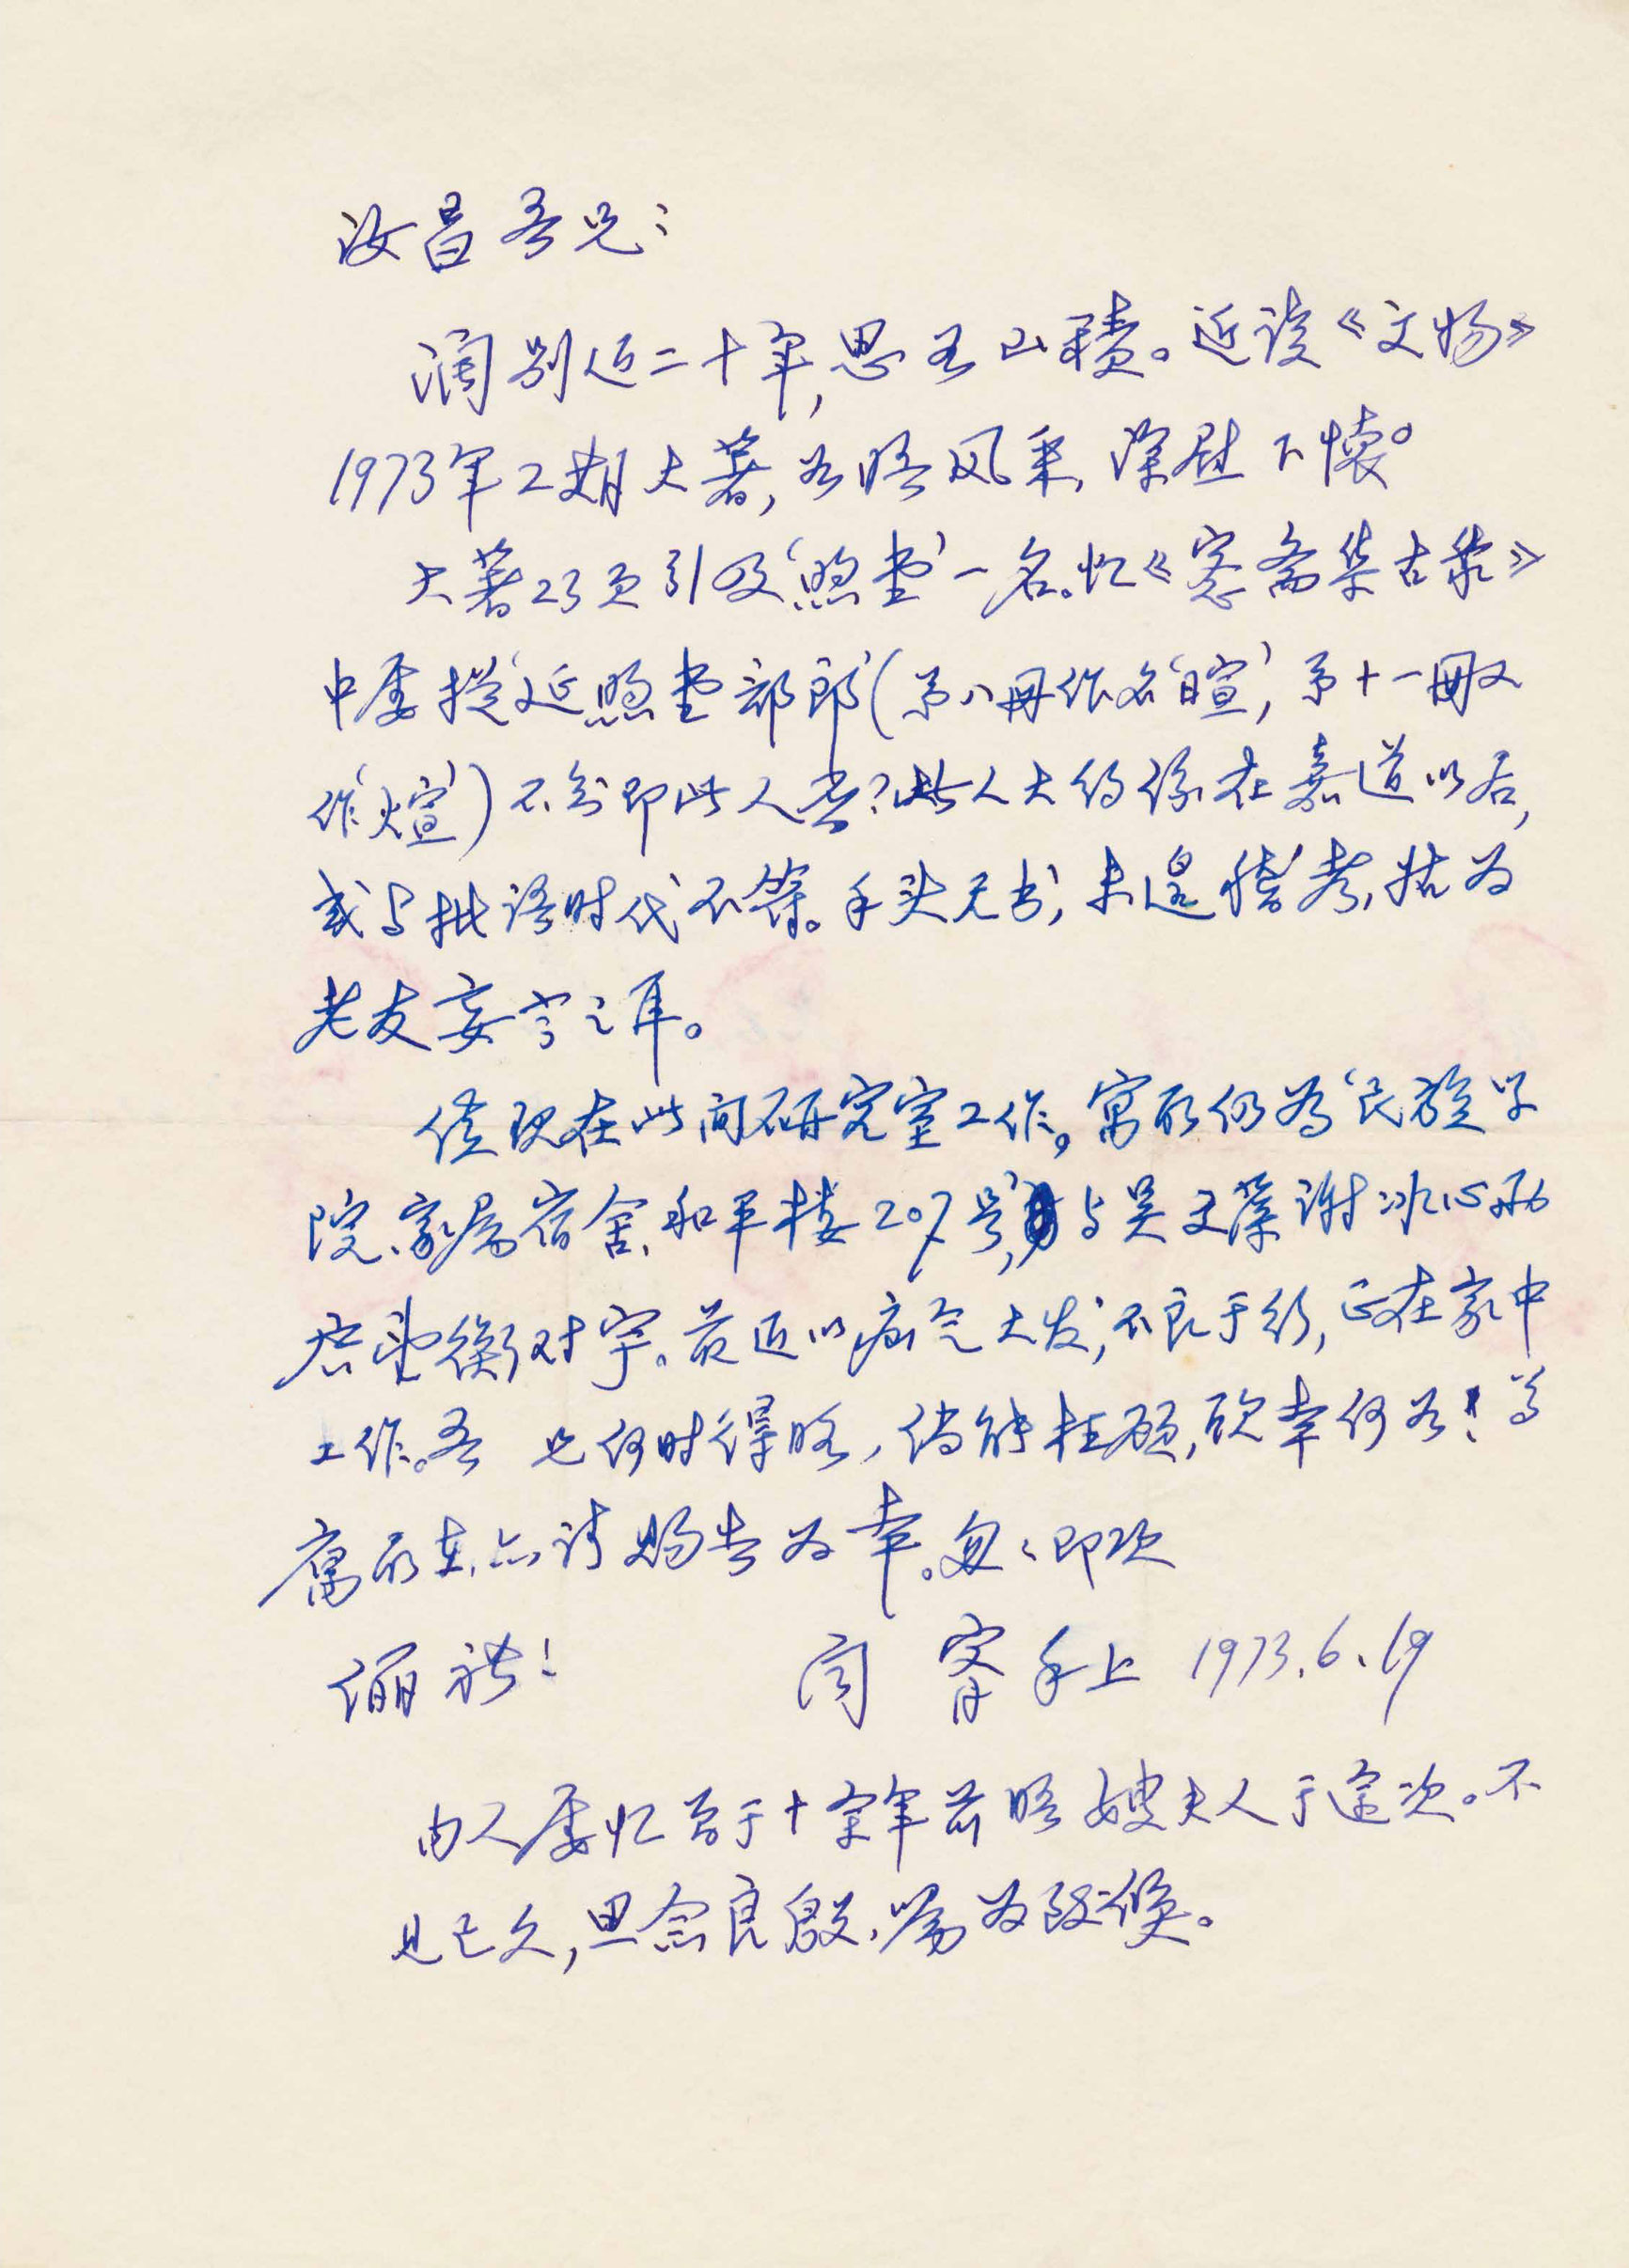 汝昌吾兄：
阔别近二十年，思与山积。近读《文物》
1973年2期大著，如晤风采，深慰下怀。
大著23页引及‘煦堂’一名。忆《愙斋集古录》
中屡提‘延煦堂部郎’（第八册作名‘暄’，第十一册又
作‘煊’）不知即此人否？此人大约系在嘉道以后，
或与批语时代不符。手头无书，未遑稽考，姑为
老友妄言之耳。
侄现在此间研究室工作。寓所仍为‘民族学
院、家属宿舍、和平楼207号’，与吴文藻谢冰心两
君望衡对宇。最近以疝气大发，不良于行，正在家中
工作。吾 兄何时得暇，倘能枉顾，欣幸何如！尊
寓所在，亦请赐告为幸。匆匆即颂
俪祺！ 闻 宥手上 1973.6.19
内人屡忆及于十余年前晤嫂夫人于途次。不
见已久，思念良殷，嘱为致候。